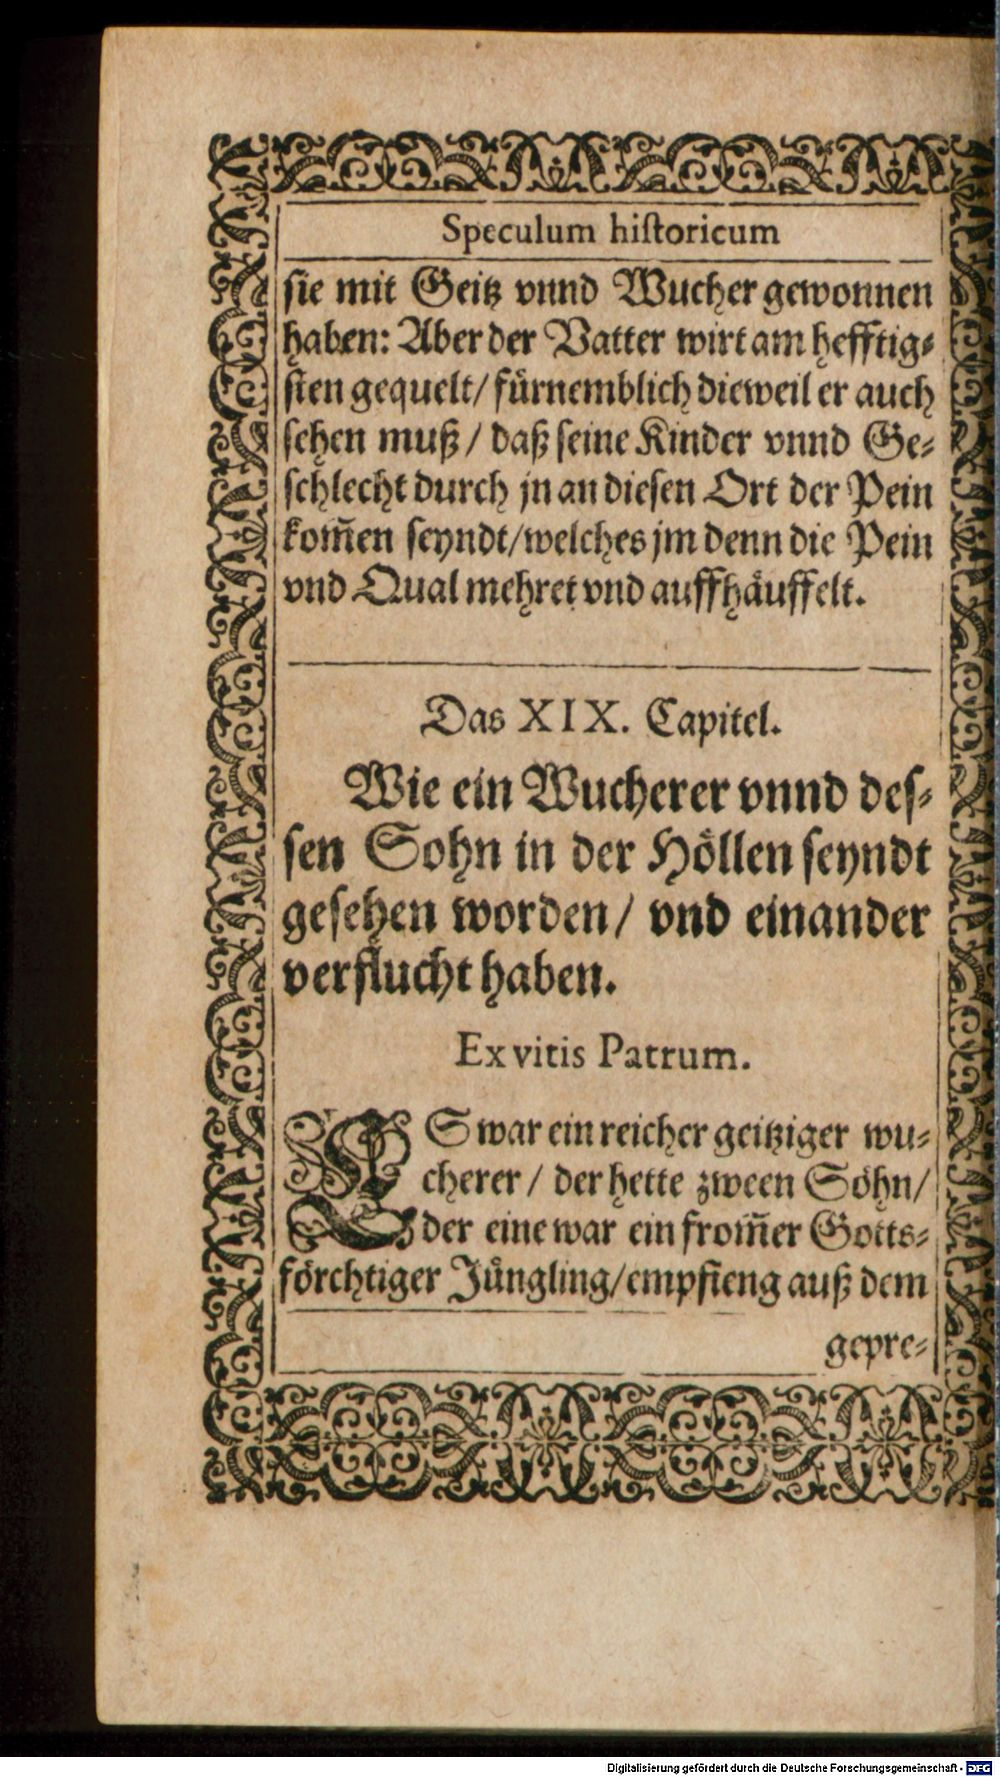 Speculum historicum
sie mit Geitz vnnd Wucher gewonnen
haben: Aber der Vatter wirt am hefftig-
sten gequelt/ fürnemblich dieweil er auch
sehen muß/ daß seine Kinder vnnd Ge-
schlecht durch jn an diesen Ort der Pein
kom̃en seyndt/welches jm denn die Pein
vnd Qual mehret vnd auffhäuffelt.
Das XIX. Capitel.
Wie ein Wucherer vnnd des-
sen Sohn in der Höllen seyndt
gesehen worden/ vnd einander
verflucht haben.
Ex vitis Patrum.
ES war ein reicher geitziger wu-
cherer/ der hette zween Söhn/
der eine war ein from̃er Gotts-
förchtiger Jüngling/empfieng auß dem
gepre-
Digitalisierung gefördert durch die Deutsche Forschungsgemeinschaft - DFG